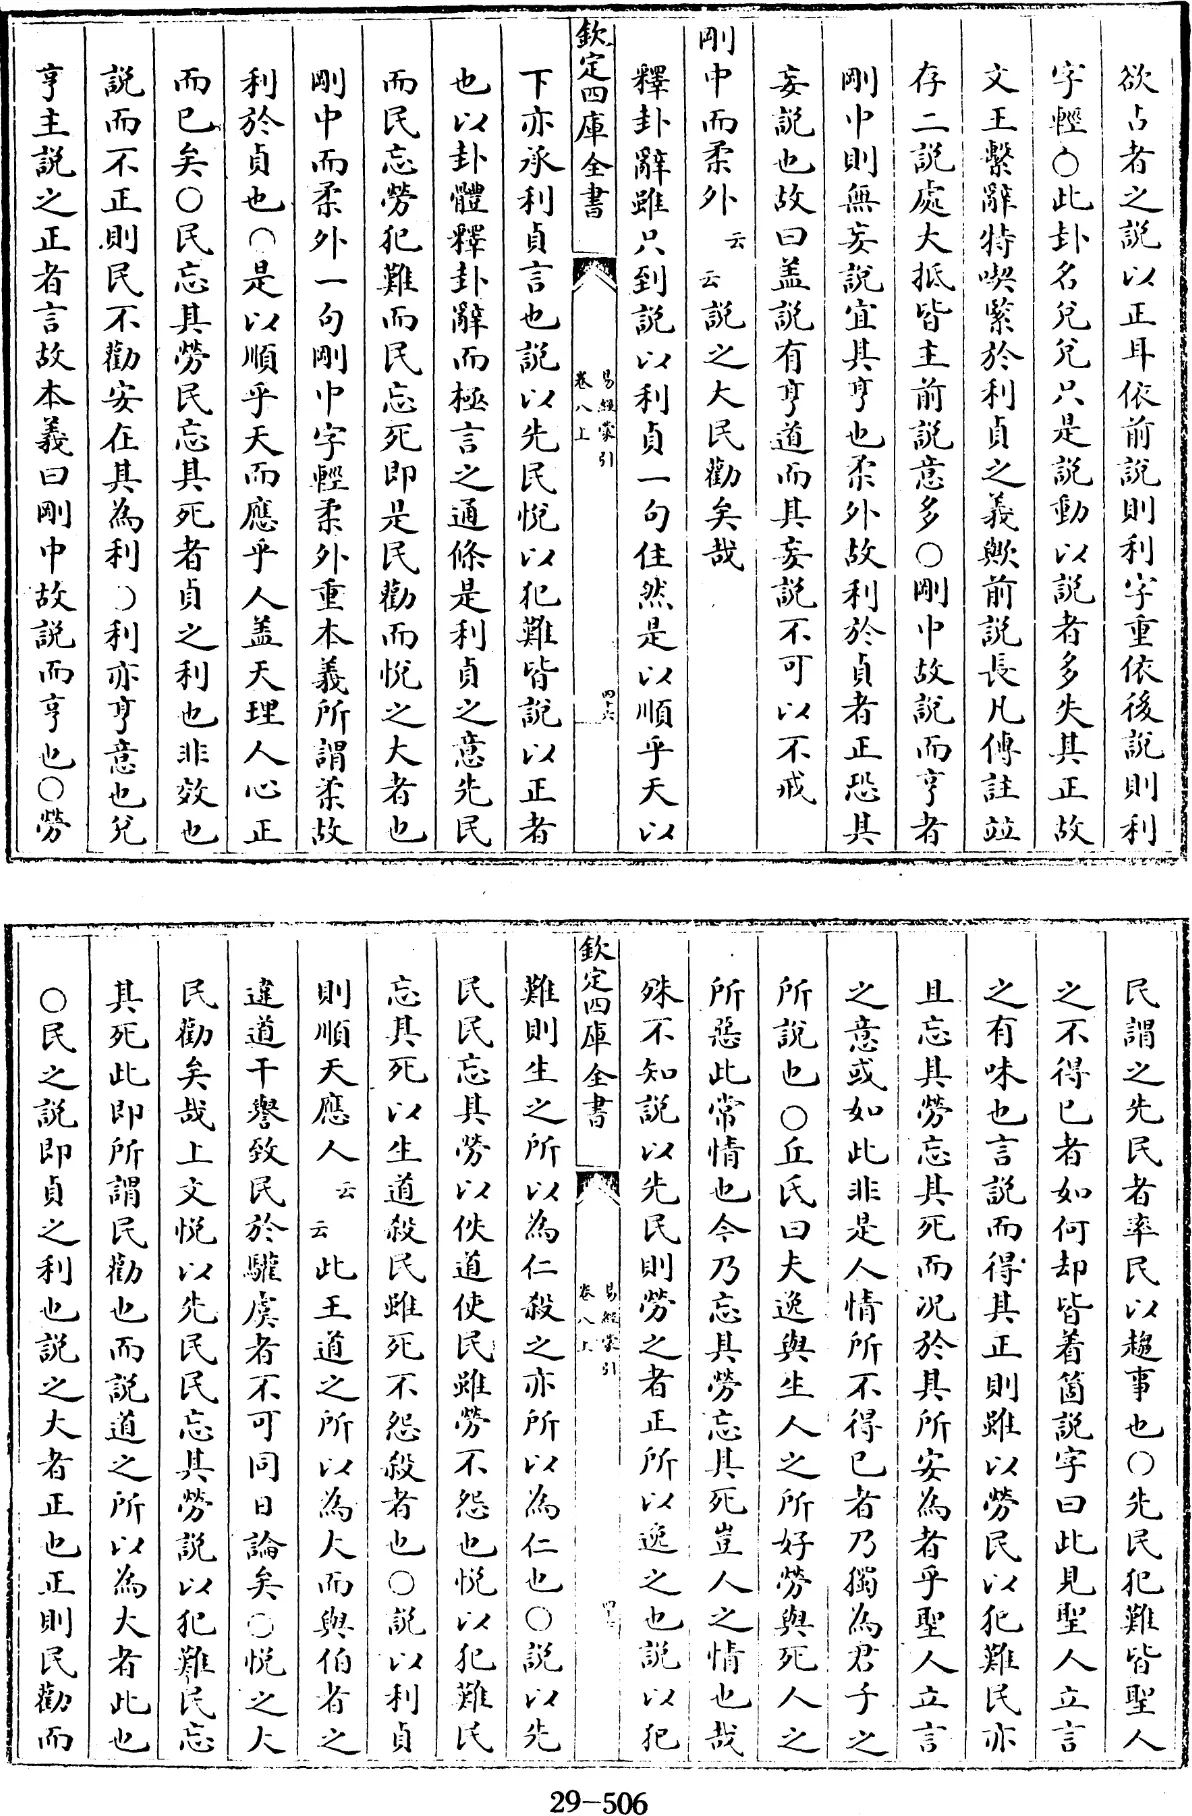 欲占者之說以正耳依前說則利字重依後說則利
字輕○此卦名兌兌只是說動以說者多失其正故
文王繫辭特喫緊於利貞之義歟前說長凡傳註竝
存二說處大抵皆主前說意多○剛中故說而亨者
剛中則無妄說宜其亨也柔外故利於貞者正恐其
妄說也故曰盖說有亨道而其妄說不可以不戒
剛中而柔外云云說之大民勸矣哉
釋卦辭雖只到說以利貞一句住然是以順乎天以
欽定四庫全書
易經蒙引
卷八上
四六
下亦承利貞言也說以先民悅以犯難皆說以正者
也以卦體釋卦辭而極言之通條是利貞之意先民
而民忘勞犯難而民忘死即是民勸而悅之大者也
剛中而柔外一句剛中字輕柔外重本義所謂柔故
利於貞也○是以順乎天而應乎人盖天理人心正
而已矣○民忘其勞民忘其死者貞之利也非效也
說而不正則民不勸安在其為利○利亦亨意也兌
亨主說之正者言故本義曰剛中故說而亨也○勞
民謂之先民者率民以趨事也○先民犯難皆聖人
之不得已者如何却皆着箇說字曰此見聖人立言
之有味也言說而得其正則雖以勞民以犯難民亦
且忘其勞忘其死而况於其所安為者乎聖人立言
之意或如此非是人情所不得已者乃獨為君子之
所說也○丘氏曰夫逸與生人之所好勞與死人之
所惡此常情也今乃忘其勞忘其死豈人之情也哉
殊不知說以先民則勞之者正所以逸之也說以犯
欽定四庫全書
易經蒙引
卷八上
難則生之所以為仁殺之亦所以為仁也○說以先
民民忘其勞以佚道使民雖勞不怨也悅以犯難民
忘其死以生道殺民雖死不怨殺者也○說以利貞
則順天應人云云此王道之所以為大而與伯者之
違道干譽致民於驩虞者不可同日論矣○悅之大
民勸矣哉上文悅以先民民忘其勞說以犯難民忘
其死此即所謂民勸也而說道之所以為大者此也
○民之說即貞之利也說之大者正也正則民勸而
29-506